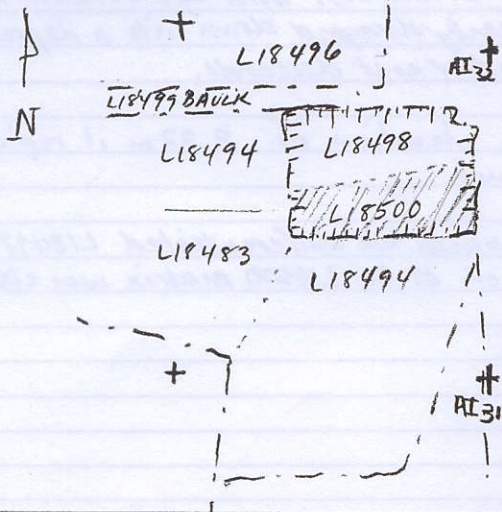 L18496
AI32
L18499 BAULK
N
L18494 L18498
L18500
L18483
L18494
AI31